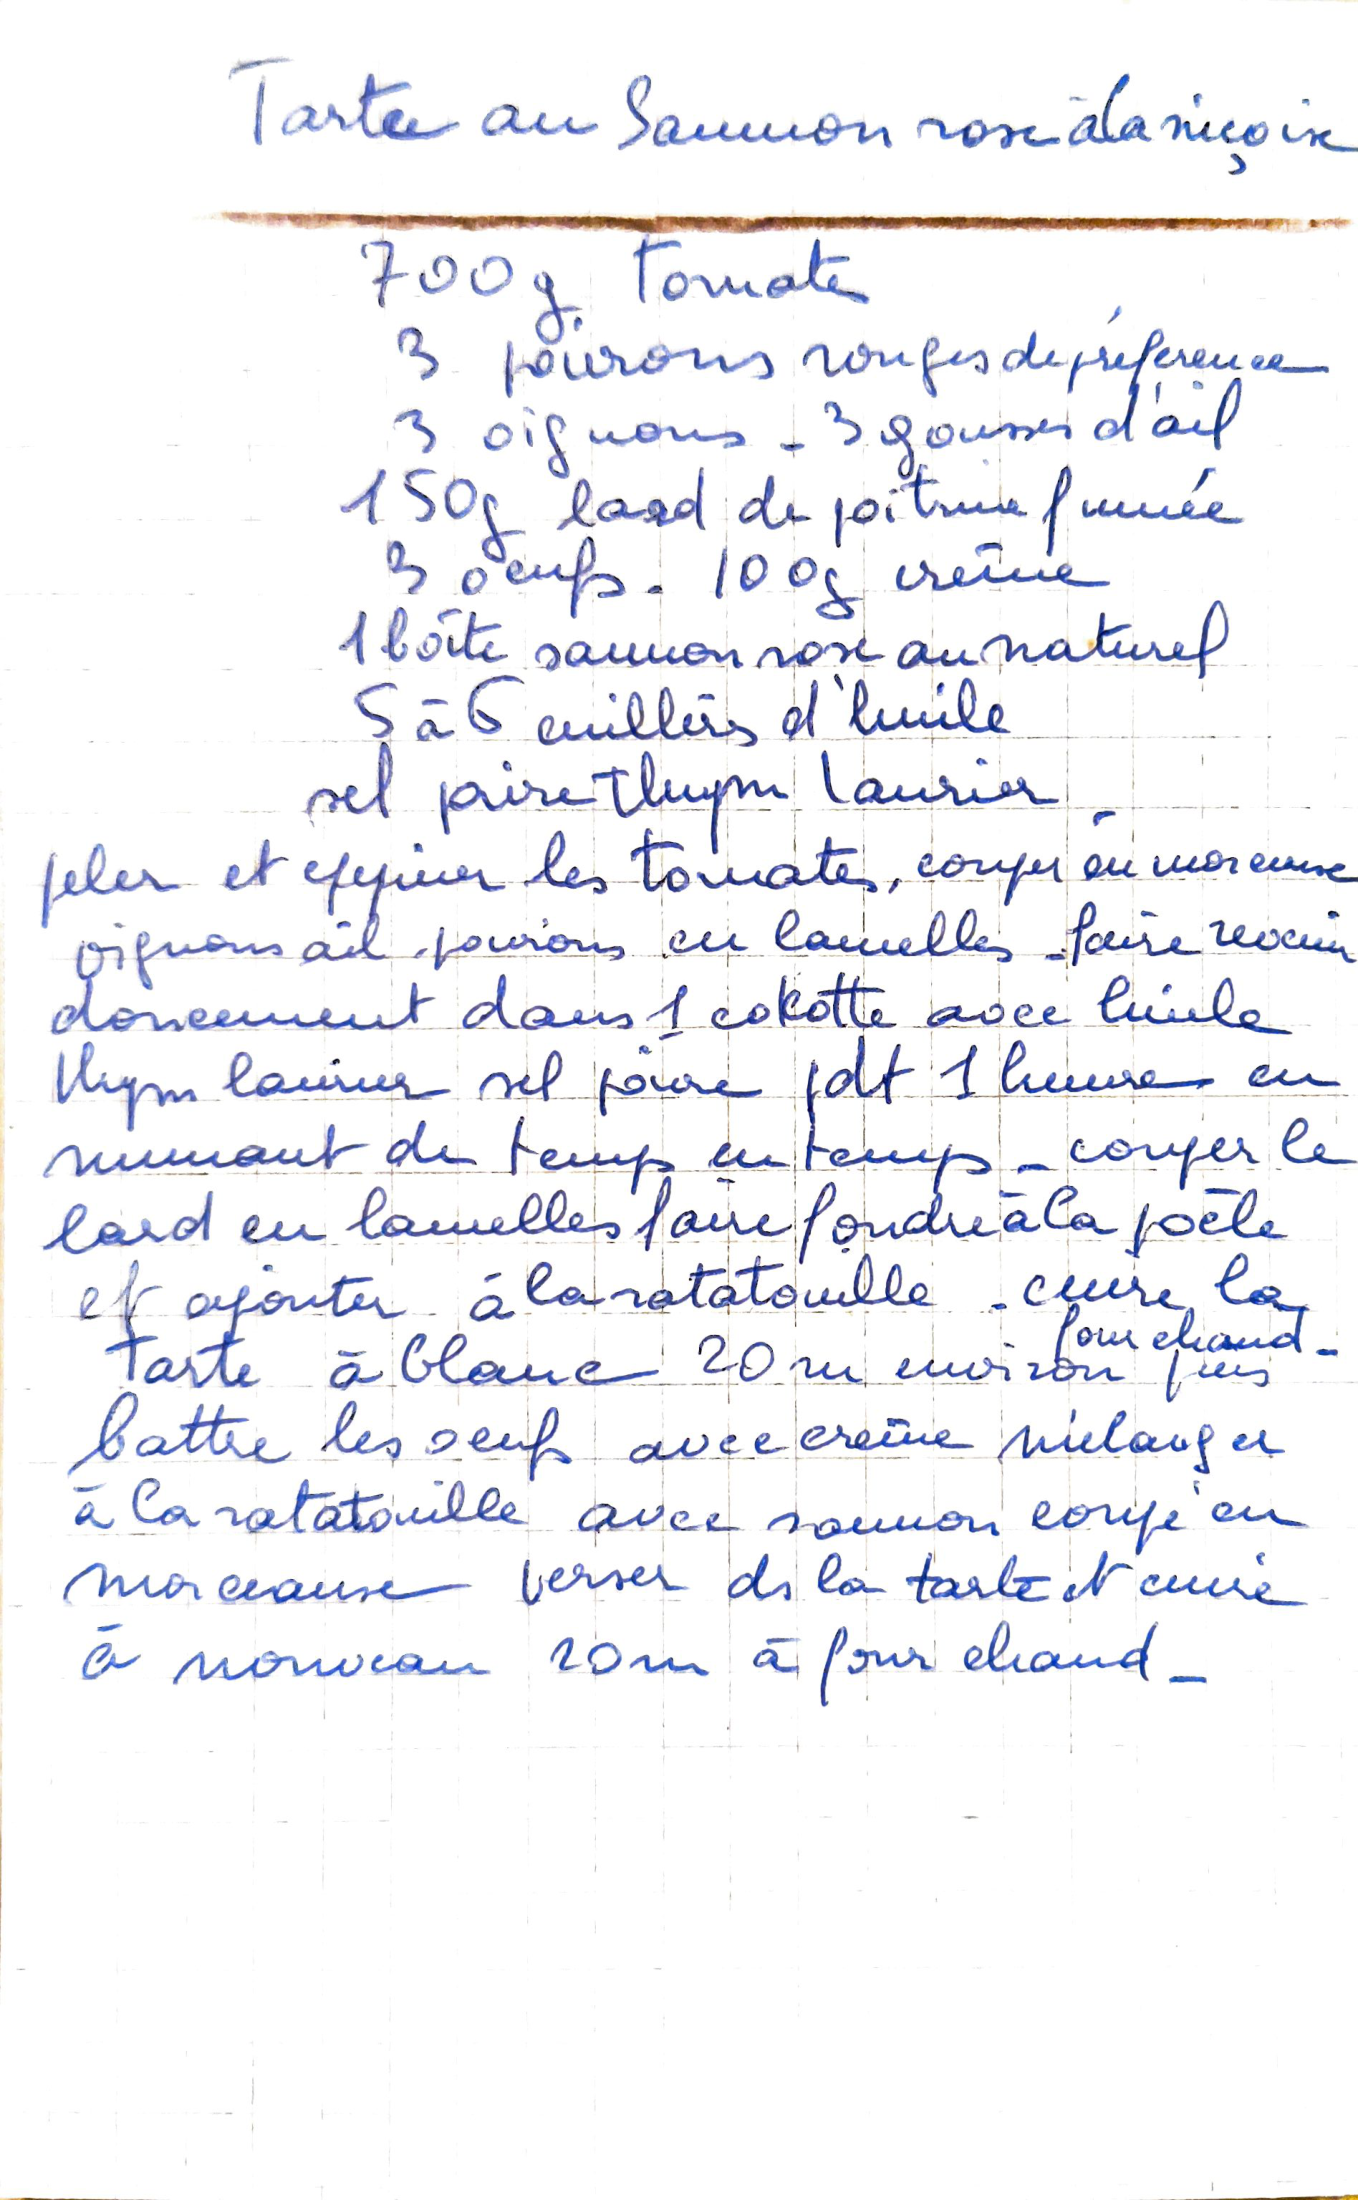 Tarte au Saumon rose à la niçoise
700g tomates
3 poivrons rouges de préférence
3 oignons - 3 gousses d'ail
150g lard de poitrine fumée
3 oeufs - 100g crème
1 boîte saumon rose au naturel
5 à 6 cuillères d'huile
sel poivre thym laurier -
peler et eppiner les tomates, couper en morceaux
oignons ail poivrons en lamelles - faire revenir
doucement dans 1 cokotte avec huile
thym laurier sel poivre pdt 1 heure en
remuant de temps en temps - couper le
lard en lamelles faire fondre à la poêle
et ajouter à la ratatouille - cuire la
four chaud -
tarte à blanc 20 m environ puis
battre les oeufs avec crème mélanger
à la ratatouille avec saumon coupé en
morceaux verser ds la tarte et cuire
à nouveau 20 m à four chaud -